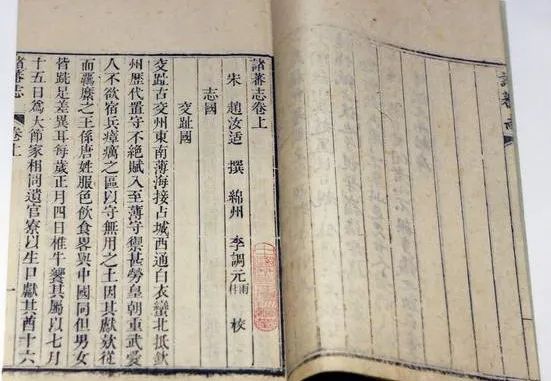 諸蕃志
諸蕃志卷上
宋 趙汝适 撰 綿州 李調元 雨村 校
志國
交趾國
交趾古交州東南薄海接占城西通白衣蠻北抵欽
州歷代置守不絕賦入至薄守禦甚勞皇朝重武愛
人不欲宿兵瘴癘之區以守無用之土因其獻欵從
而羈縻之王係唐姓服色飲食畧與中國同但男女
皆跣足差異耳每歲正月四日椎牛饗其屬以七月
十五日為大節家相同遺官寮以生口獻其酋十六
諸蕃志 卷上 一